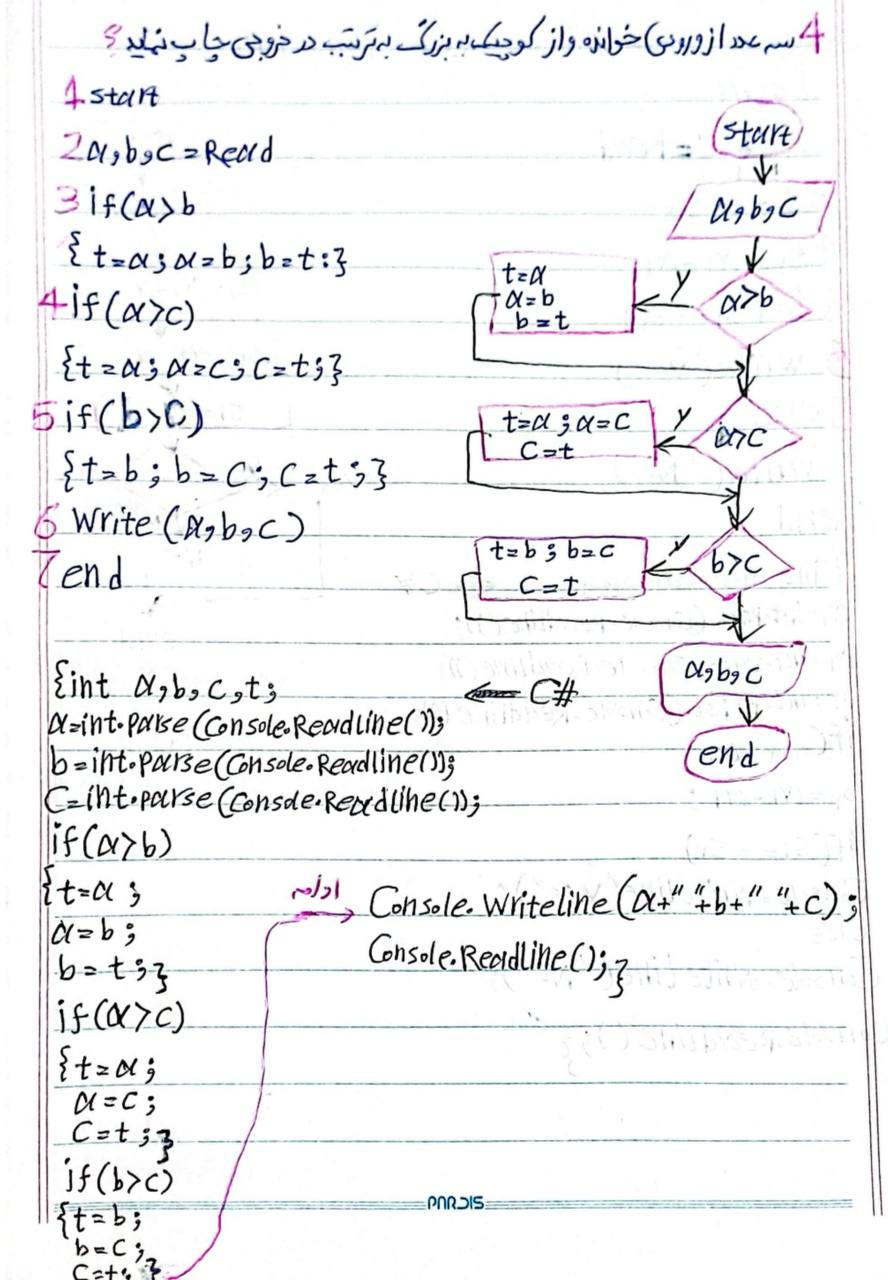 4 سه عدد از ورودی خوانده و از کوچیک به بزرگ به ترتیب در خروجی چاپ نماید؟
1 start
2 a,b,c = Read
3 if(a>b
{ t=a; a=b; b=t:}
4 if(a>c)
{t=a; a=c; c=t;}
5 if(b>c)
{t=b; b=c; c=t;}
6 Write (a,b,c)
7 end
start
a,b,c
a>b
y
t=a
a=b
b=t
a>c
y
t=a; a=c
c=t
b>c
y
t=b; b=c
c=t
a,b,c
end
C#
{int a,b,c,t;
a=int.parse(Console.Readline());
b=int.parse(Console.Readline());
c=int.parse(Console.Readline());
if(a>b)
{t=a;
a=b;
b=t;}
if(a>c)
{t=a;
a=c;
c=t;}
if(b>c)
{t=b;
b=c;
c=t;}
Console.Writeline(a+" "+b+" "+c);
Console.Readline();}
PARDIS